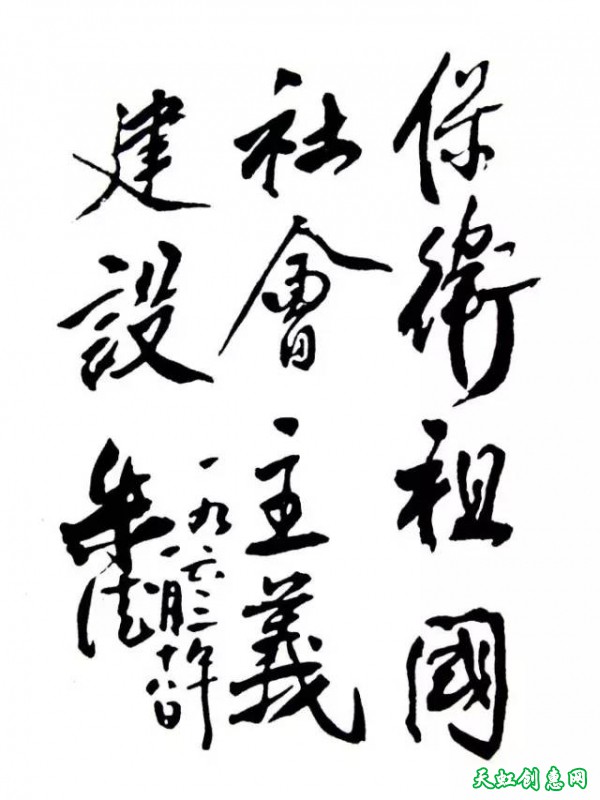 保衛祖國
社會主義
建設
一九六三年
一月十八日
朱德
天虹创惠网